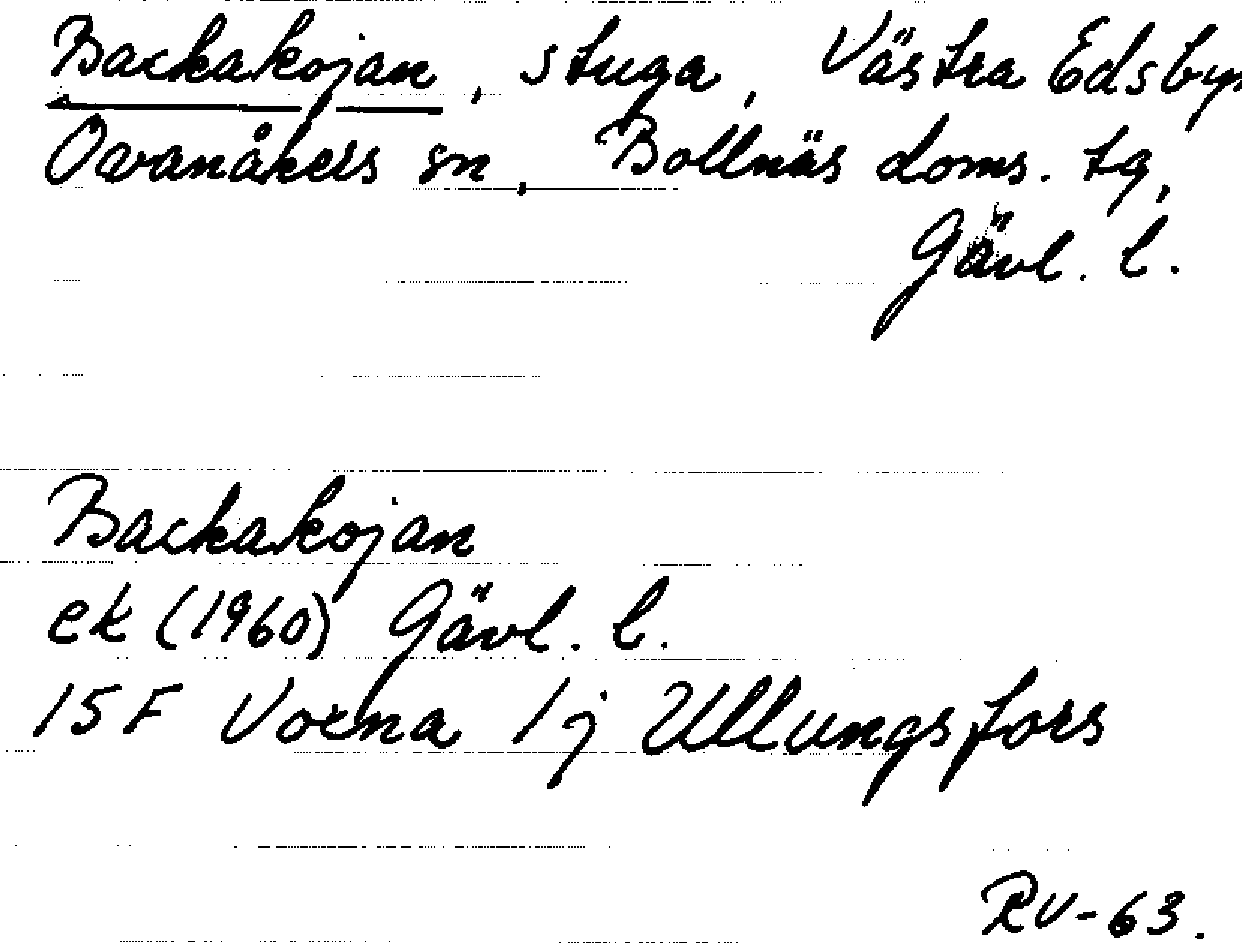 Backakojan, stuga, Västra Edsbyn
Ovanåkers sn, Bollnäs doms. tg,
Gävl. l.
Backakojan
ek (1960) Gävl. l.
15F Voxna 1j Ullungsfors
RV-63.